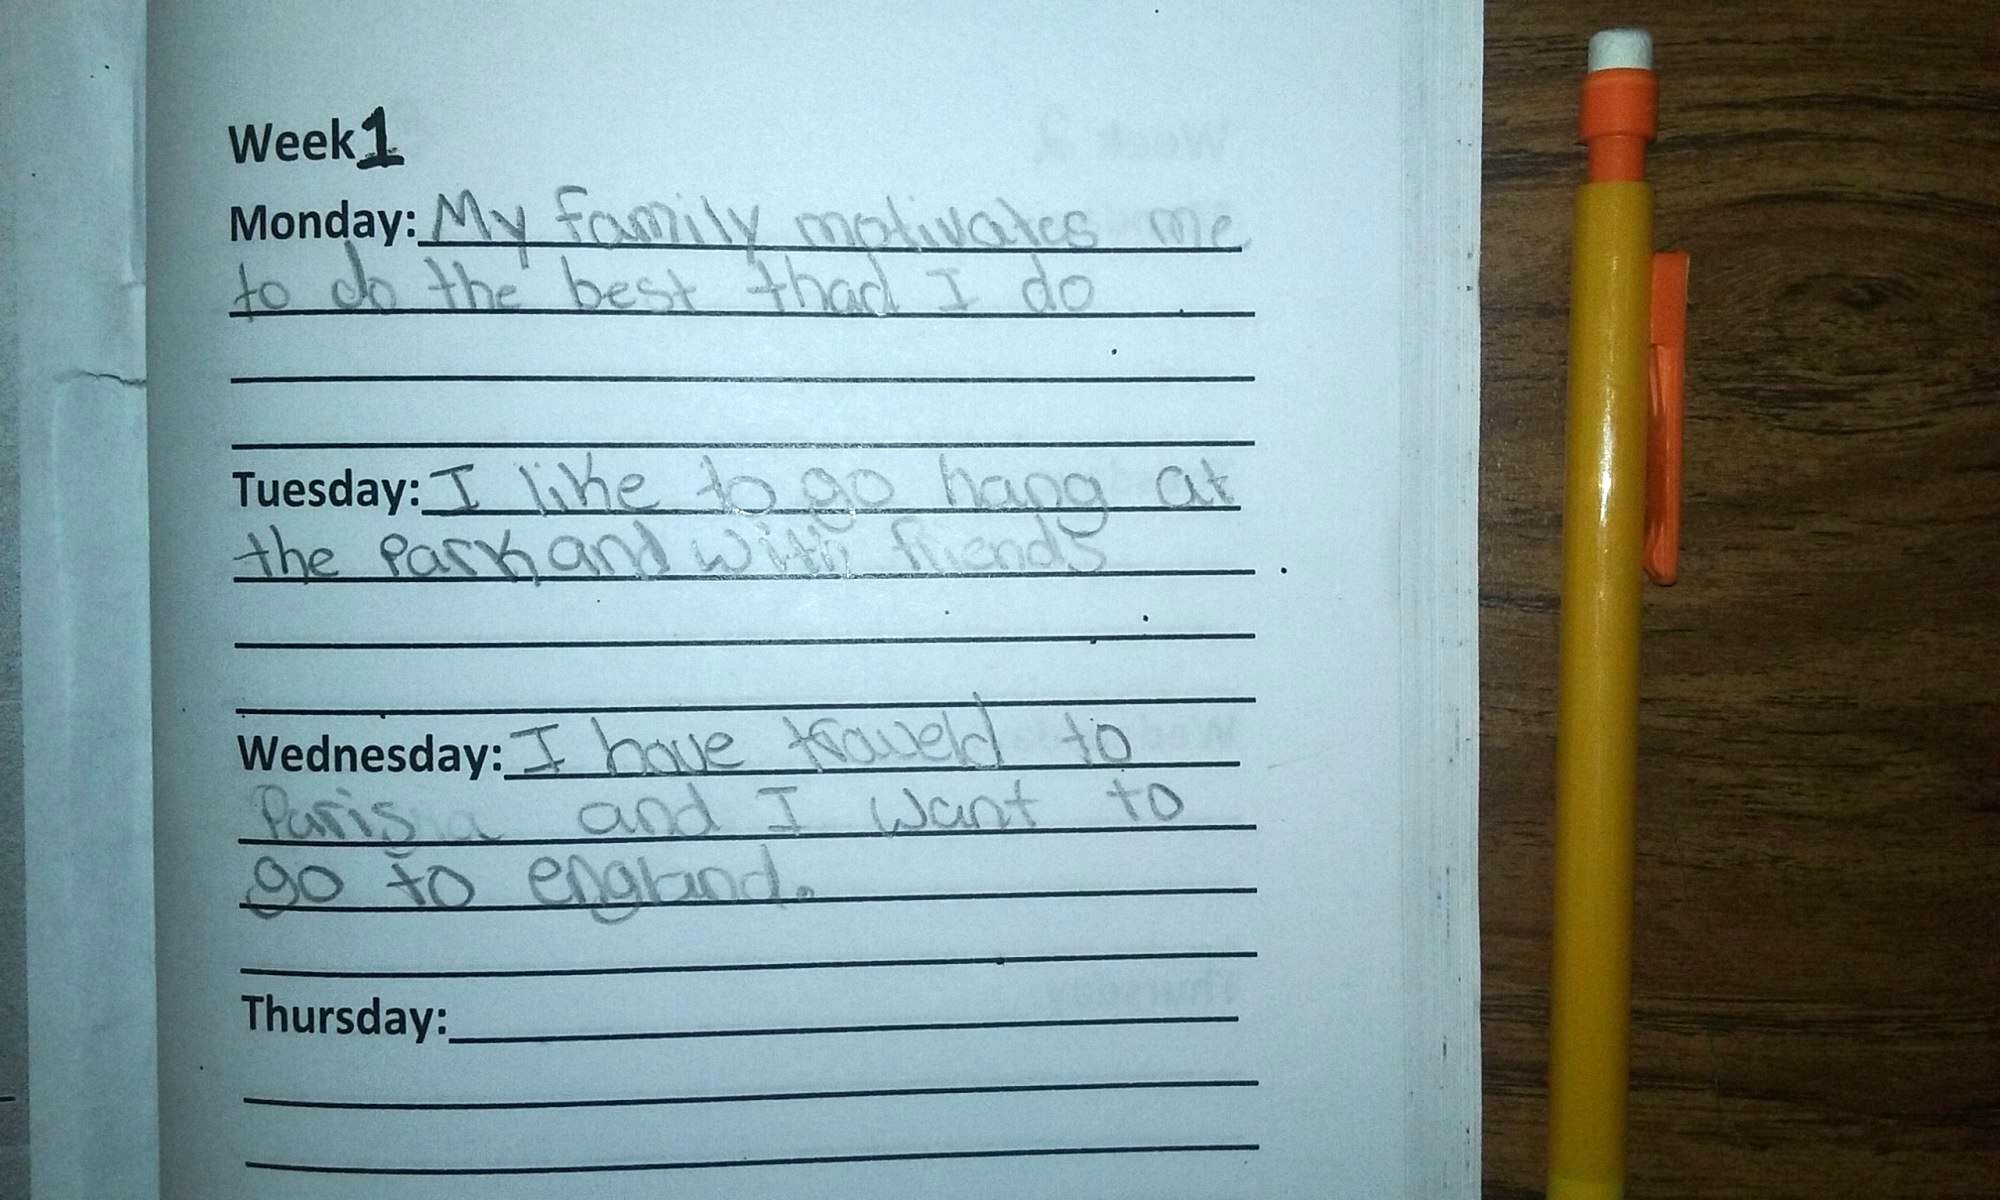 Week 1
Monday: My family motivates me
to do the best thad I do
Tuesday: I like to go hang at
the Park and with friends
Wednesday: I have traveld to
Paris and I want to
go to england.
Thursday: